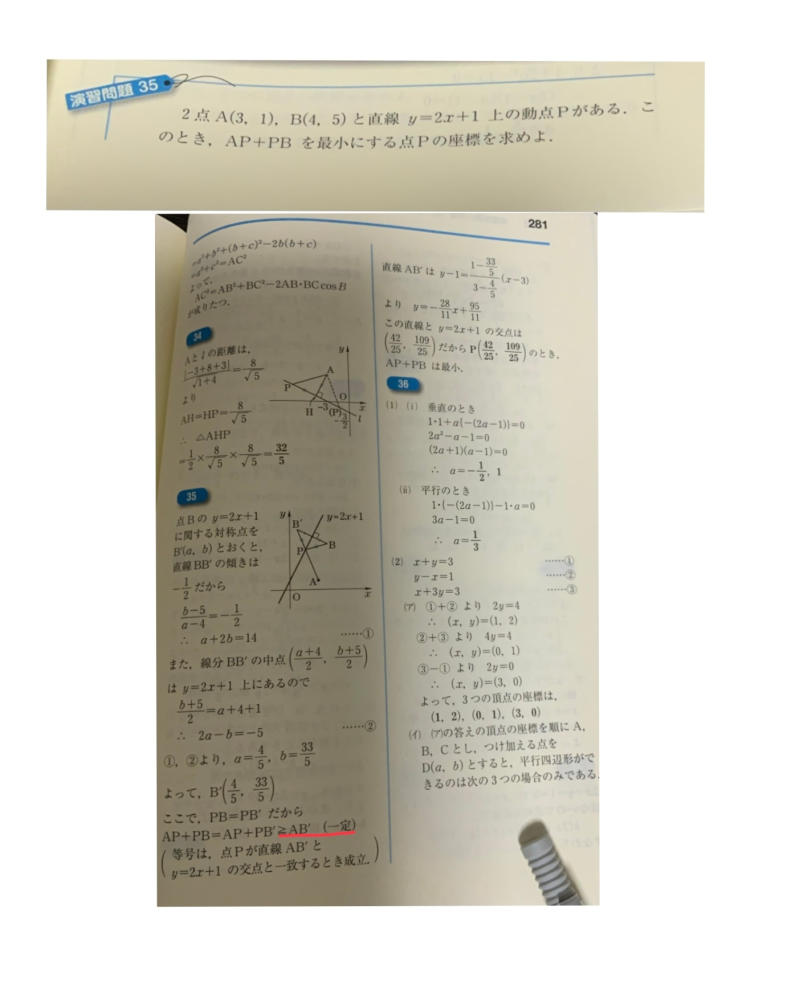 演習問題 35
2点 A(3, 1), B(4, 5) と直線 y=2x+1 上の動点Pがある. こ
のとき, AP+PB を最小にする点Pの座標を求めよ.
281
=a²+b²+(b+c)²-2b(b+c)
=a²+c²=AC²
よって,
AC²=AB²+BC²-2AB・BC cos B
が成りたつ.
34
Aとlの距離は,
|-3+8+3|/√(1+4)=8/√5
より
AH=HP=8/√5
∴ △AHP
=1/2×8/√5×8/√5=32/5
y
A
P
O
H
-3
(P)
x
-3/2
l
35
点Bの y=2x+1
に関する対称点を
B'(a, b) とおくと,
直線BB' の傾きは
-1/2 だから
(b-5)/(a-4)=-1/2
∴ a+2b=14 ……①
また, 線分 BB' の中点((a+4)/2, (b+5)/2)
は y=2x+1 上にあるので
(b+5)/2=a+4+1
∴ 2a-b=-5 ……②
①, ②より, a=4/5, b=33/5
よって, B'(4/5, 33/5)
ここで, PB=PB' だから
AP+PB=AP+PB'≧AB' (一定)
(等号は, 点Pが直線 AB' と
y=2x+1 の交点と一致するとき成立.)
y
B'
y=2x+1
P
B
A
O
x
直線 AB' は y-1=(1-33/5)/(3-4/5)(x-3)
より y=-28/11x+95/11
この直線と y=2x+1 の交点は
(42/25, 109/25) だから P(42/25, 109/25) のとき,
AP+PB は最小.
36
(1) (i) 垂直のとき
1・1+a{-(2a-1)}=0
2a²-a-1=0
(2a+1)(a-1)=0
∴ a=-1/2, 1
(ii) 平行のとき
1・{-(2a-1)}-1・a=0
3a-1=0
∴ a=1/3
(2) x+y=3 ……①
y-x=1 ……②
x+3y=3 ……③
(ア) ①+② より 2y=4
∴ (x, y)=(1, 2)
②+③ より 4y=4
∴ (x, y)=(0, 1)
③-① より 2y=0
∴ (x, y)=(3, 0)
よって, 3つの頂点の座標は,
(1, 2), (0, 1), (3, 0)
(イ) (ア)の答えの頂点の座標を順に A,
B, Cとし, つけ加える点を
D(a, b)とすると, 平行四辺形がで
きるのは次の3つの場合のみである.